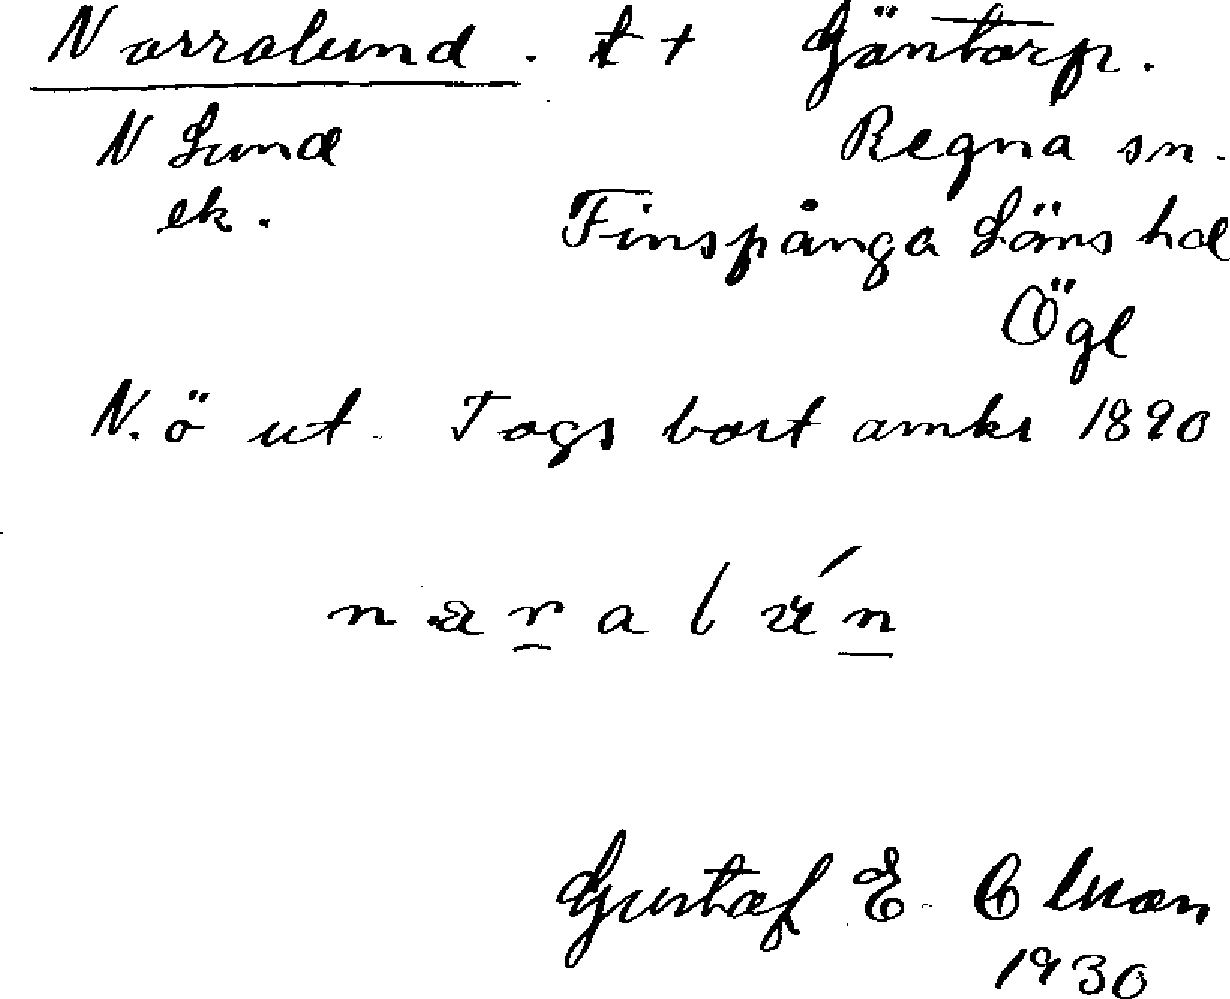 Norralund. t + Gäntorp.
N Lund Regna sn.
ek. Finspånga Läns hd
Ögl
N. ö ut. Togs bort amkr 1890
naralún
Gustaf E. Olsson
1930